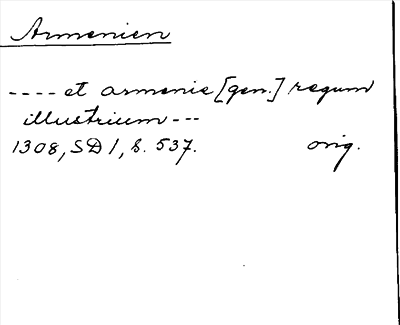 Armenien
---- et armenie [gen.] regum
illustrium ---
1308, SD 1, s. 537. orig.